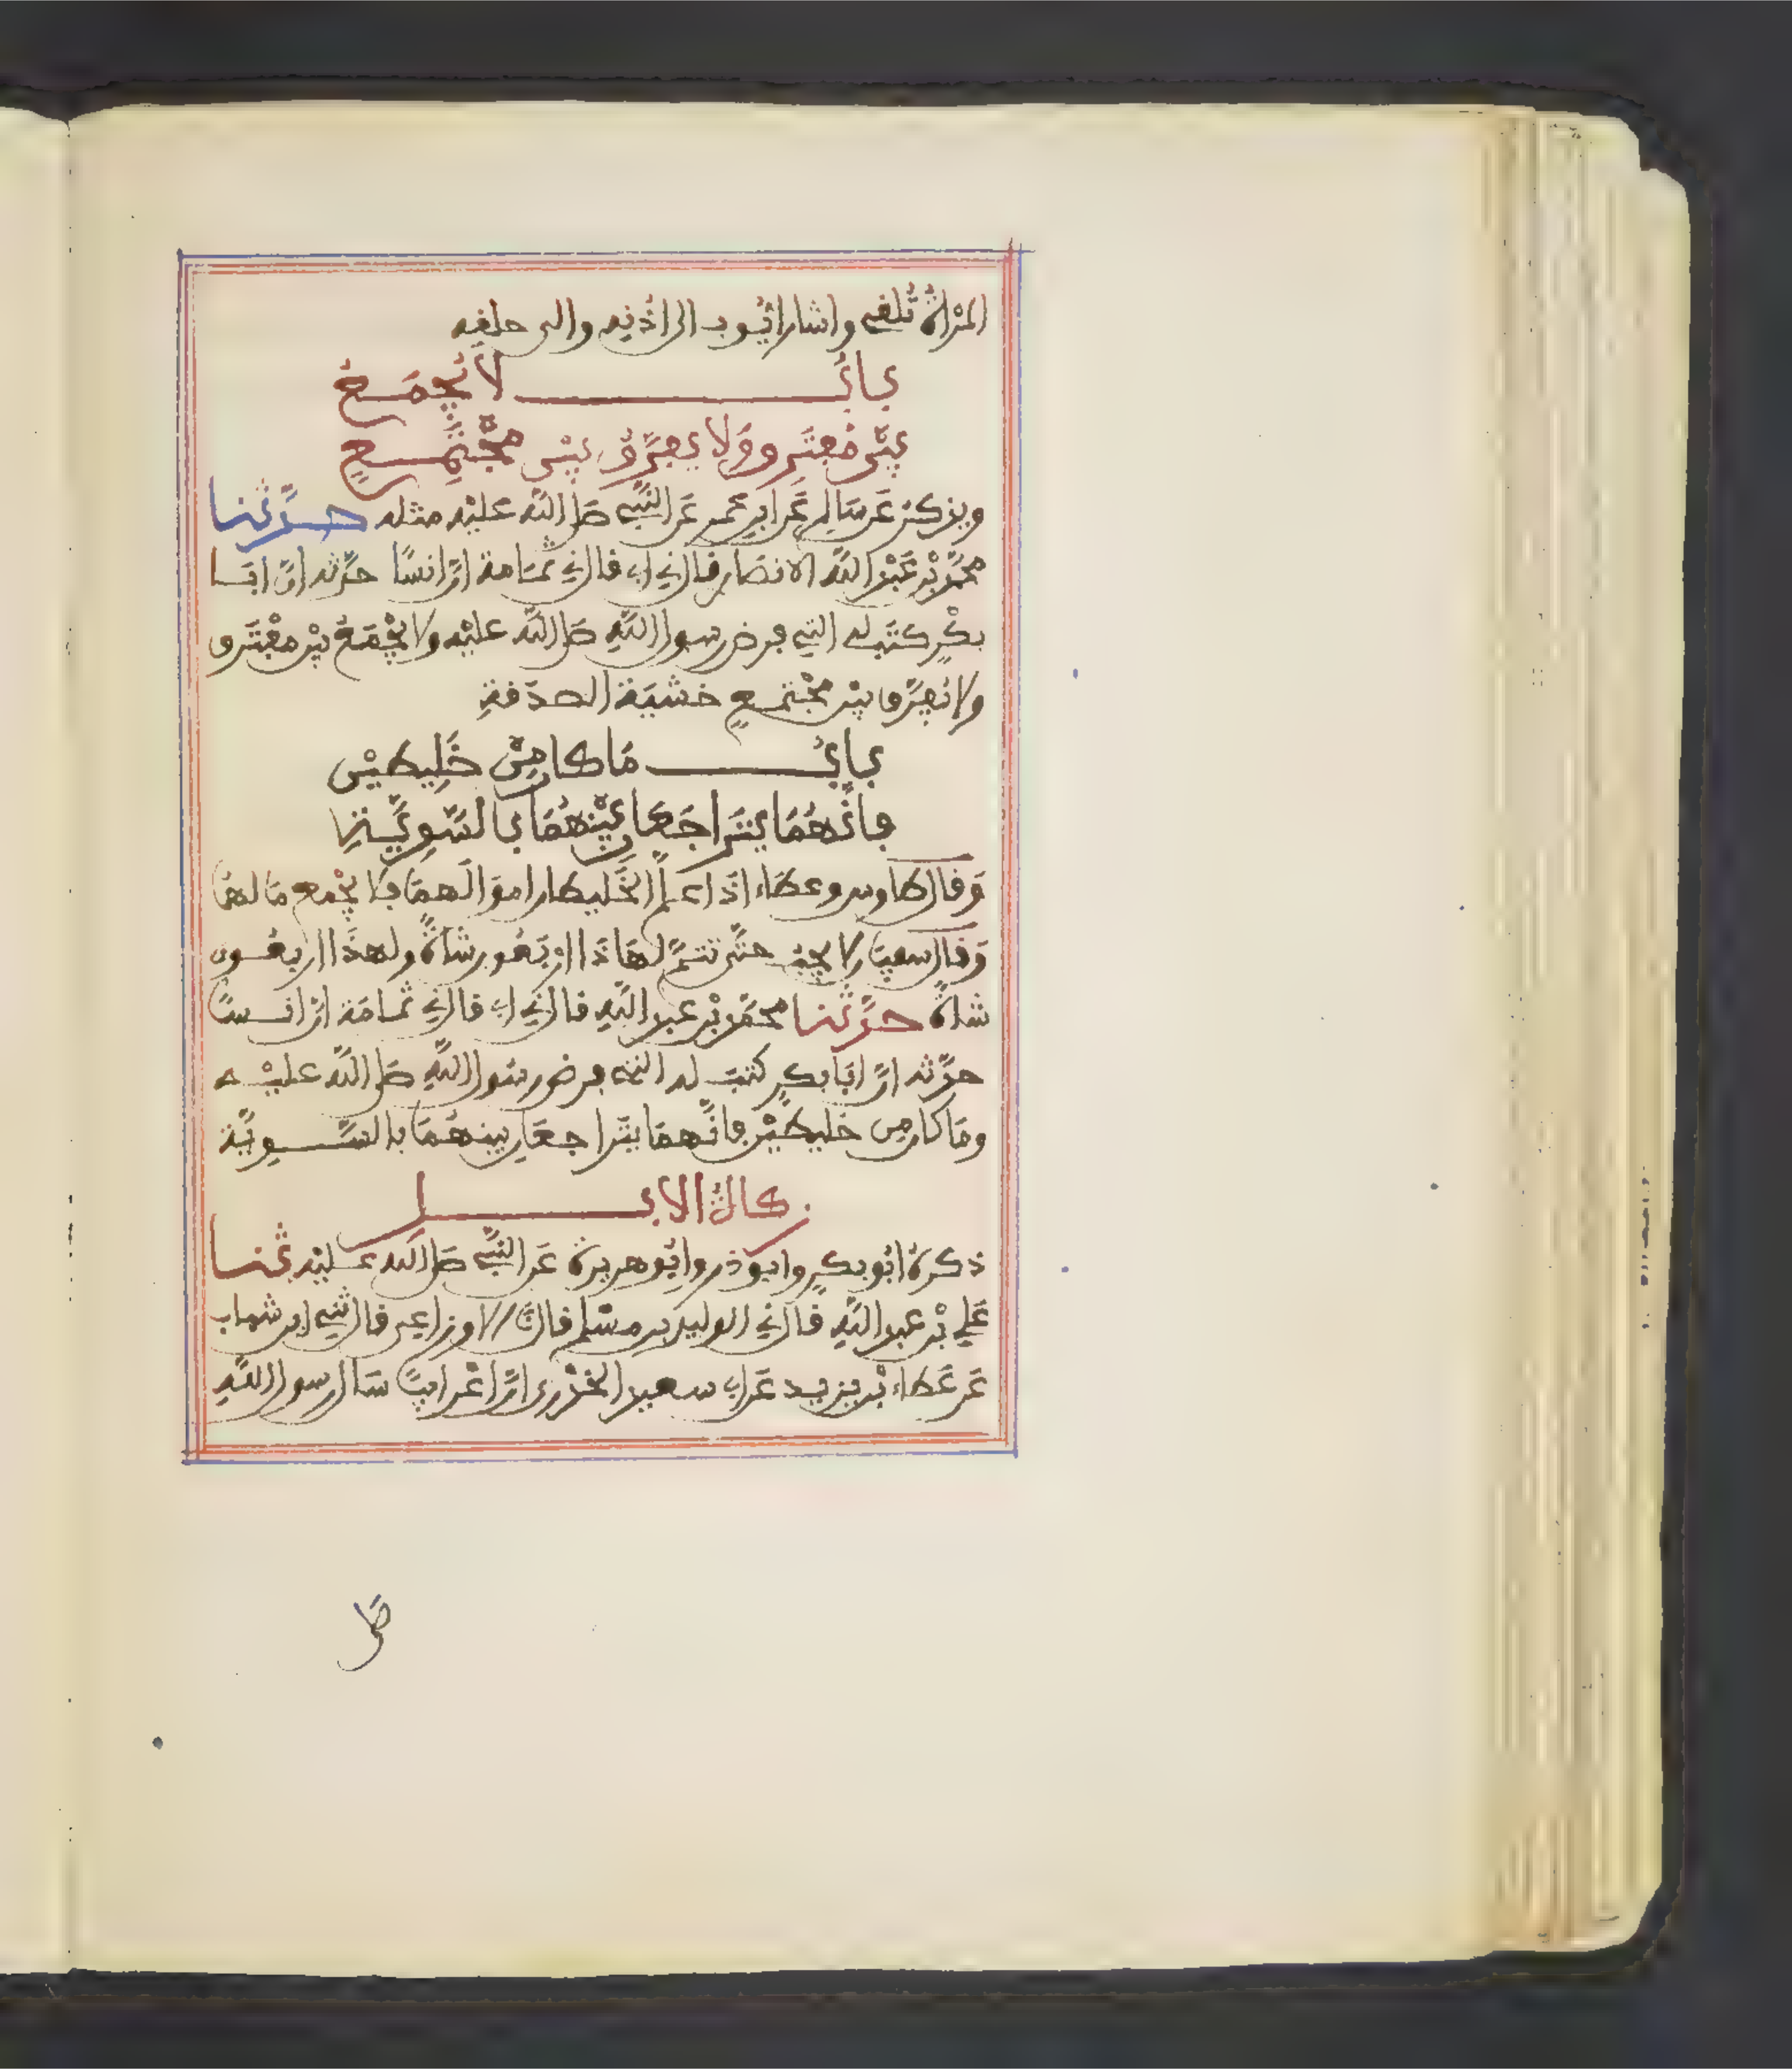 المرْأةُ تُلقي واشار ايُّوب الى اذنيه والى حلقه
بابُ لا يُجْمَعُ
بيْنَ مُفتَرِق ولا يفرَّقُ بيْن مجْتَمِعٍ
ويذكرُ عَن سَالم عَن ابن عمر عَن النَّبي صَلى اللّه عليْه مثله حدَّثنا
محمَّد بْن عَبْد اللّه الانصَاري قال ني ابي قال ني ثمَامة انَّ انسًا حدَّثه انّ ابَا
بكْرٍ كتَبَ له التي فرض رسول اللّهِ صَلى اللّه عليْه ولا يُجْمَعُ بيْن مفْتَرق
ولا يُفرَّق بيْن مجْتمعٍ خشيَة الصدَقةِ
بابُ مَا كان مِنْ خَلِيطيْن
فانَّهُمَا يتَراجَعَان بيْنهُمَا بالسَّوِيَّةِ
وَقال طاوس وعطَاء اذَا علم الخَليطان اموَالَهمَا فلا يُجْمع مَالهمَا
وَقال سفيَان لا يجبُ حتَّى تتمَّ لهاذَا ارْبَعُون شاةً ولهذَا اربعُون
شاةً حدَّثنا محمَّد بْن عبد اللّهِ قال ني ابي قال ني ثمامَة انَّ انسًا
حدَّثه انَّ ابَا بكرٍ كتبَ له التي فرض رسُول اللّهِ صَلى اللّه عليْه
ومَا كان مِن خليطيْن فانَّهمَا يتَراجعَان بينهُمَا بالسَّويَّة
زكاةُ الابل
ذكرهُ ابُو بكرٍ وابو ذر وابُو هريرة عَن النَّبي صَلى اللّه عليْه ثنا
عَلي بْن عبد اللّهِ قال ني الوليد بن مسْلم قال نا الاوزاعي قال ثني ابن شهاب
عَن عَطاء بْن يزيد عَن ابي سعيد الخدْري انَّ اعْرَابيًّا سَال رسول اللّهِ
صَلى